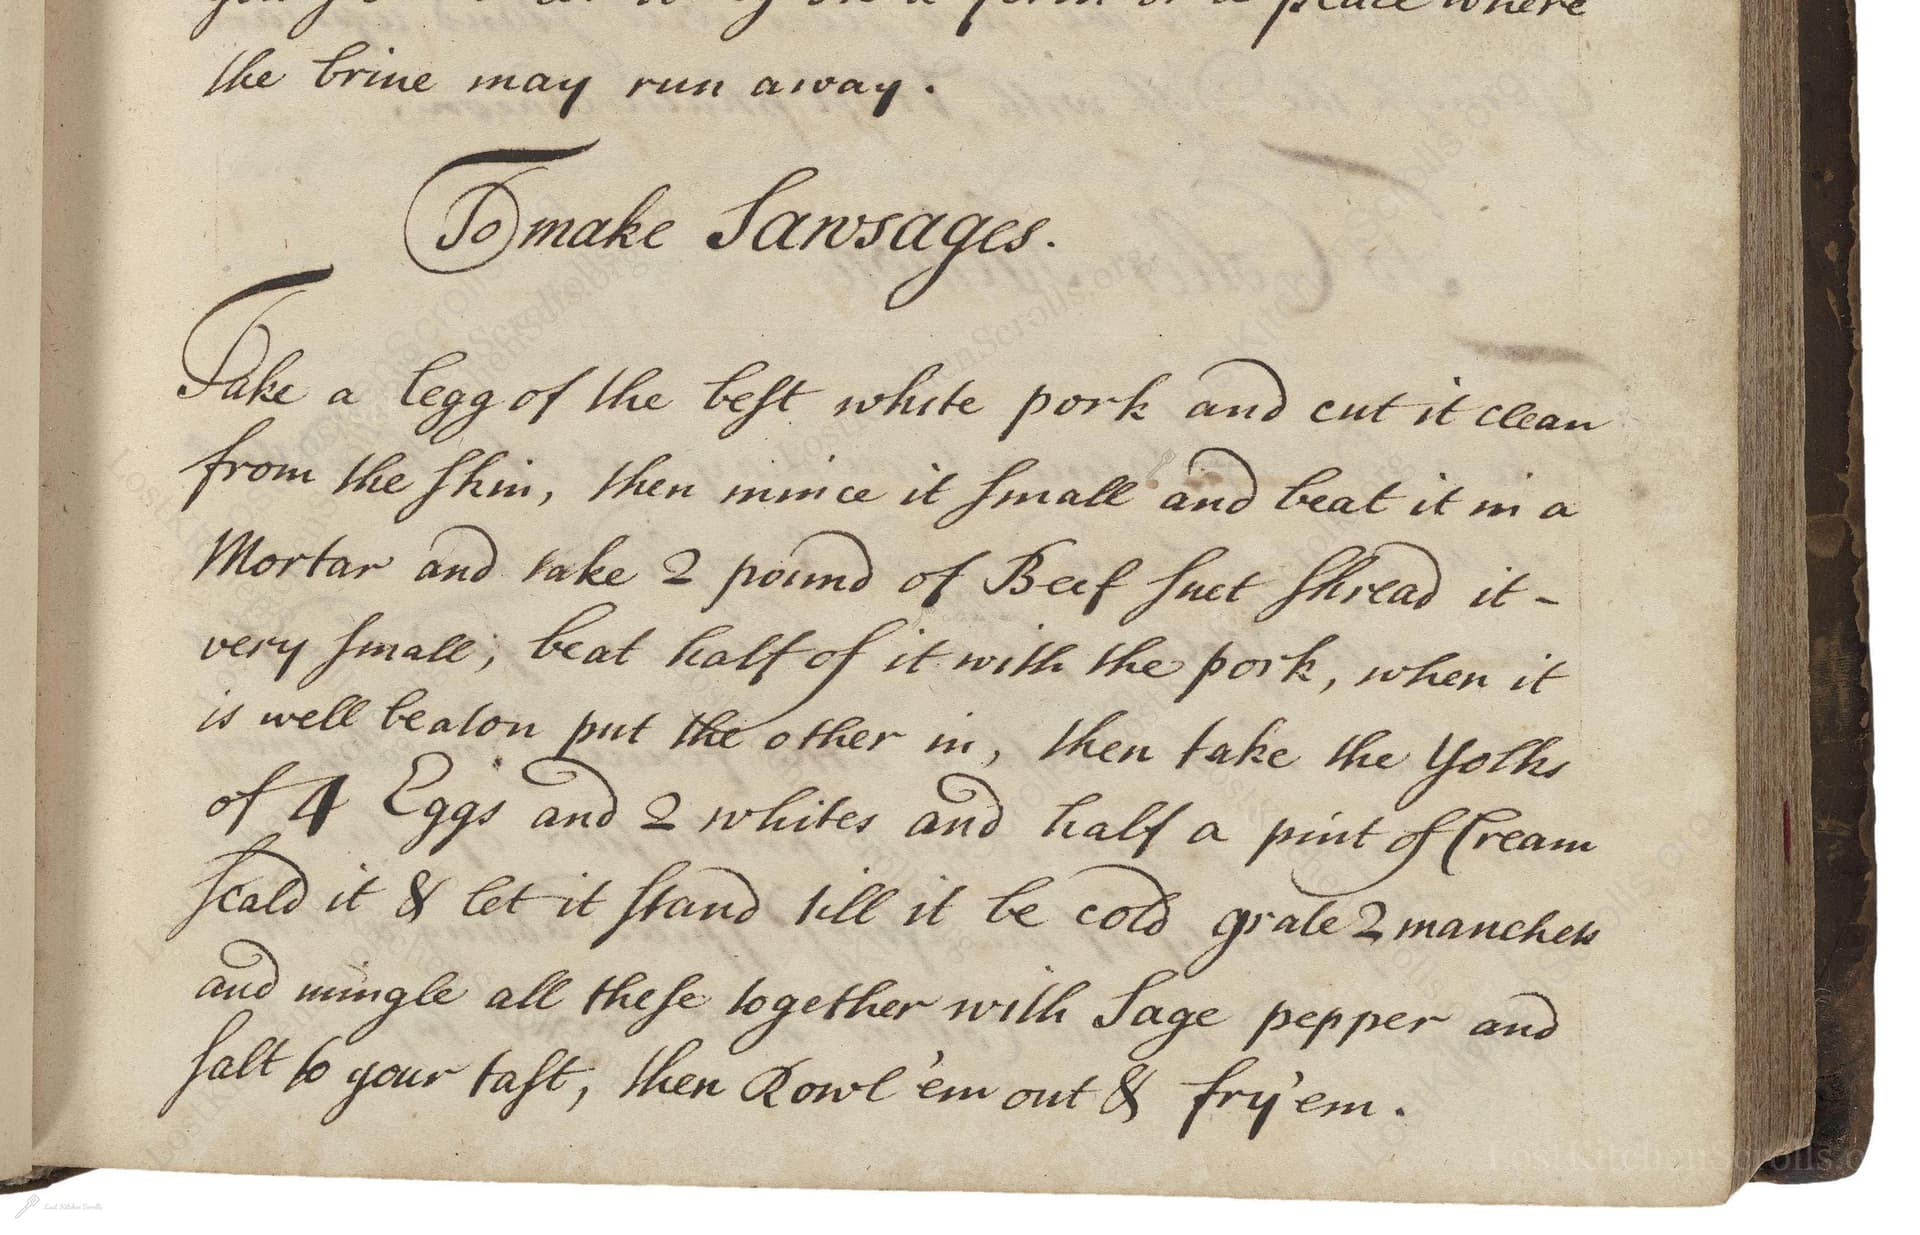 a place where
the brine may run away.
To make Sawsages.
Take a legg of the beſt white pork and cut it clean
from the ſkin, then mince it ſmall and beat it in a
Mortar and take 2 pound of Beef ſuet ſhread it -
very ſmall; beat half of it with the pork, when it
is well beaton put the other in, then take the Yolks
of 4 Eggs and 2 whites and half a pint of Cream
ſcald it & let it ſtand till it be cold grate 2 manchets
and mingle all theſe together with Sage pepper and
ſalt to your taſt, then Rowl 'em out & fry 'em.
LostKitchenScrolls.o
Lost Kitchen Scrolls